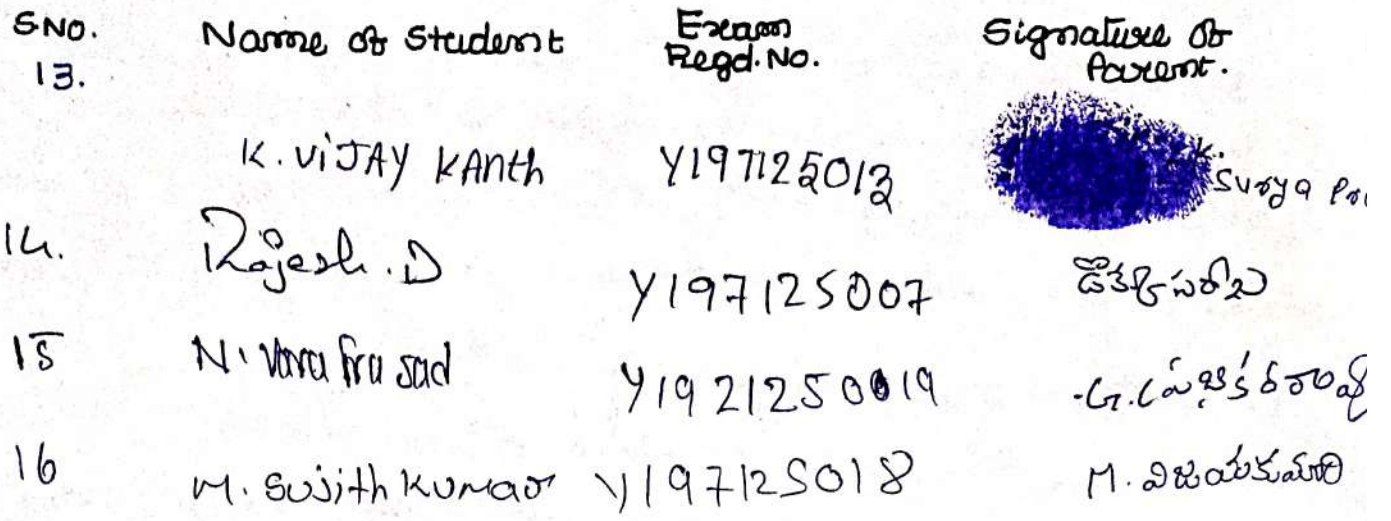 SNO. Name of Student Exam Regd. No. Signature of Parent.
13. K. ViJAY KAnth Y197125013 K. Surya
14. Rajesh. D Y197125007
15 N. Vara Pra sad Y1921250019 G.
16 M. Sujith Kumar Y197125018 M. విజయకుమారి